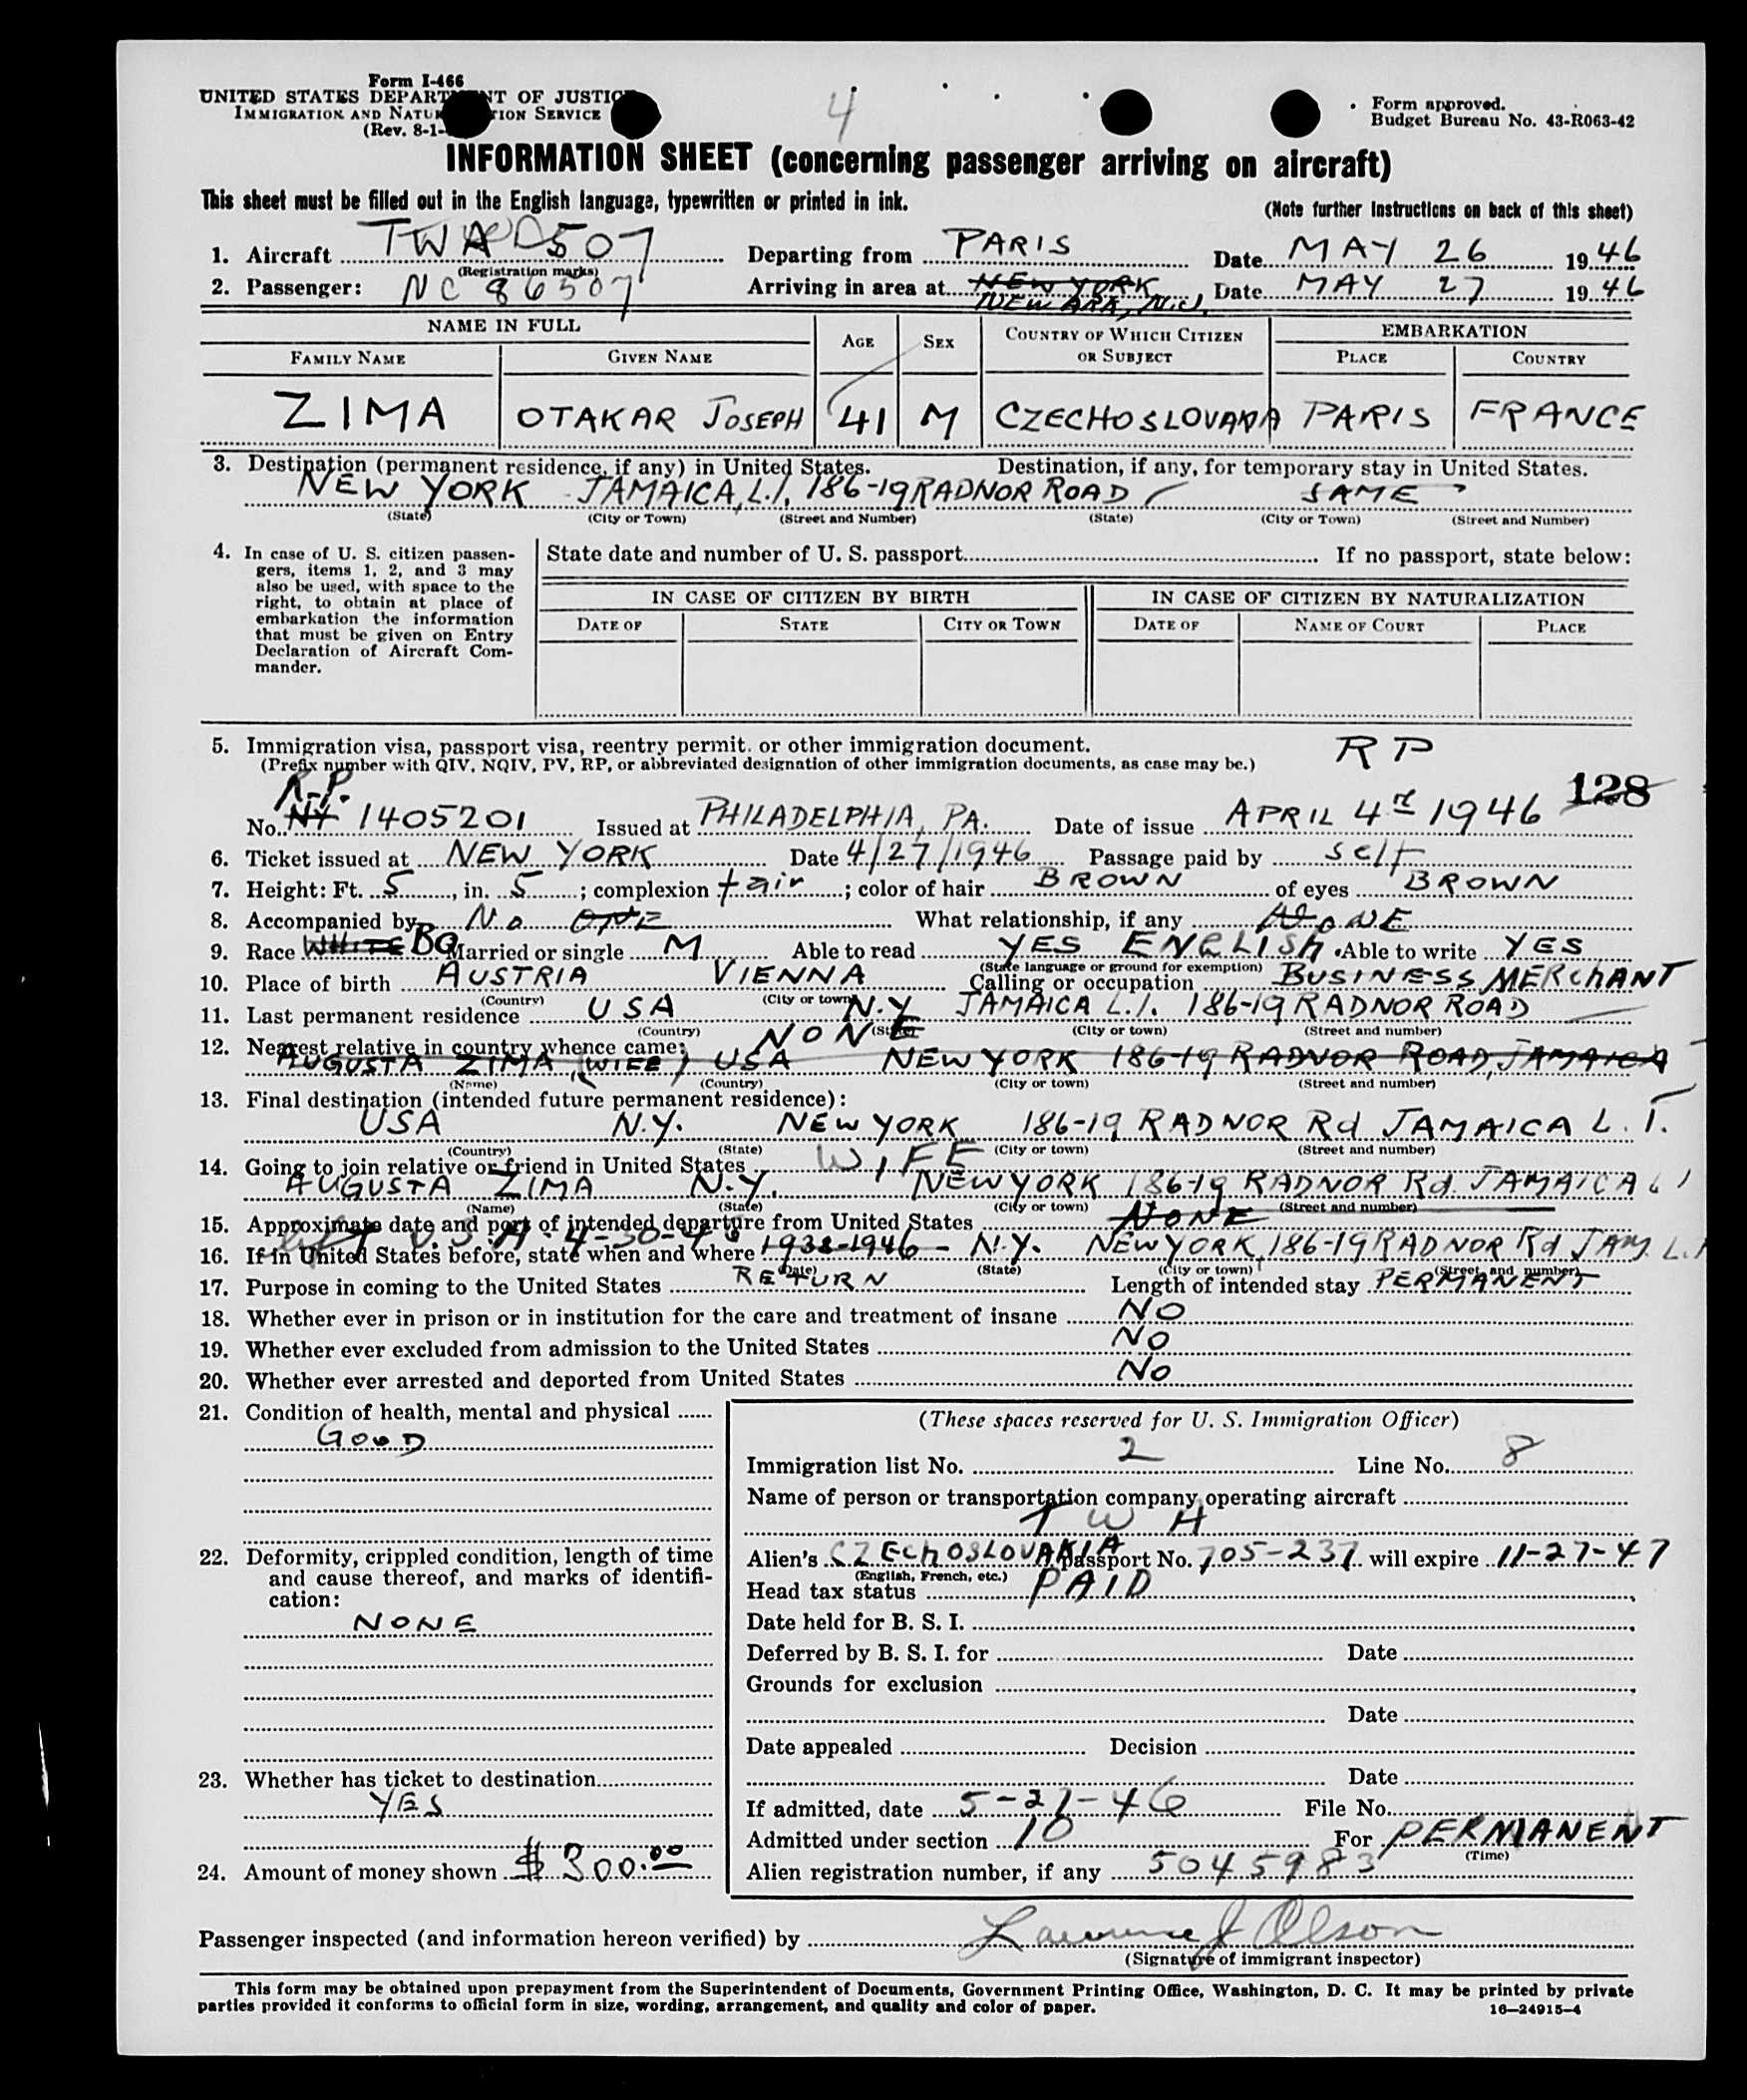 4
Form I-466
UNITED STATES DEPARTMENT OF JUSTICE
IMMIGRATION AND NATURALIZATION SERVICE
(Rev. 8-1-
Form approved.
Budget Bureau No. 43-R063-42
INFORMATION SHEET (concerning passenger arriving on aircraft)
This sheet must be filled out in the English language, typewritten or printed in ink.
(Note further instructions on back of this sheet)
1. Aircraft TWA 507 Departing from PARIS Date MAY 26 1946
(Registration marks)
2. Passenger: NC 86507 Arriving in area at NEW YORK Date MAY 27 1946
NEWARK, N.J.
NAME IN FULL AGE SEX COUNTRY OF WHICH CITIZEN OR SUBJECT EMBARKATION
FAMILY NAME GIVEN NAME PLACE COUNTRY
ZIMA OTAKAR JOSEPH 41 M CZECHOSLOVAKIA PARIS FRANCE
3. Destination (permanent residence, if any) in United States. Destination, if any, for temporary stay in United States.
NEW YORK JAMAICA, L.I. 186-19 RADNOR ROAD SAME
(State) (City or Town) (Street and Number) (State) (City or Town) (Street and Number)
4. In case of U. S. citizen passengers, items 1, 2, and 3 may also be used, with space to the right, to obtain at place of embarkation the information that must be given on Entry Declaration of Aircraft Commander.
State date and number of U. S. passport If no passport, state below:
IN CASE OF CITIZEN BY BIRTH IN CASE OF CITIZEN BY NATURALIZATION
DATE OF STATE CITY OR TOWN DATE OF NAME OF COURT PLACE
5. Immigration visa, passport visa, reentry permit, or other immigration document. RP
(Prefix number with QIV, NQIV, PV, RP, or abbreviated designation of other immigration documents, as case may be.)
128
R.P.
No. NY 1405201 Issued at PHILADELPHIA, PA. Date of issue APRIL 4 1946
6. Ticket issued at NEW YORK Date 4/27/1946 Passage paid by self
7. Height: Ft. 5, in. 5; complexion fair; color of hair BROWN of eyes BROWN
8. Accompanied by No ONE What relationship, if any NONE
9. Race WHITE BO Married or single M Able to read YES ENGLISH Able to write YES
(State language or ground for exemption)
10. Place of birth AUSTRIA VIENNA Calling or occupation BUSINESS MERCHANT
(Country) (City or town)
11. Last permanent residence USA N.Y JAMAICA L.I. 186-19 RADNOR ROAD
(Country) (State) (City or town) (Street and number)
12. Nearest relative in country whence came: NONE
AUGUSTA ZIMA (WIFE) USA NEW YORK 186-19 RADNOR ROAD, JAMAICA
(Name) (Country) (City or town) (Street and number)
13. Final destination (intended future permanent residence):
USA N.Y. NEW YORK 186-19 RADNOR Rd JAMAICA L. I.
(Country) (State) (City or town) (Street and number)
14. Going to join relative or friend in United States WIFE
AUGUSTA ZIMA N.Y. NEW YORK 186-19 RADNOR Rd JAMAICA L I
(Name) (State) (City or town) (Street and number)
15. Approximate date and port of intended departure from United States NONE
left U.S.A. 4-30-46
16. If in United States before, state when and where 1938-1946 N.Y. NEW YORK, 186-19 RADNOR Rd JAM. L.I
(Date) (State) (City or town) (Street and number)
17. Purpose in coming to the United States RETURN Length of intended stay PERMANENT
18. Whether ever in prison or in institution for the care and treatment of insane NO
19. Whether ever excluded from admission to the United States NO
20. Whether ever arrested and deported from United States NO
21. Condition of health, mental and physical
GOOD
22. Deformity, crippled condition, length of time and cause thereof, and marks of identification:
NONE
23. Whether has ticket to destination
YES
24. Amount of money shown $300.00
(These spaces reserved for U. S. Immigration Officer)
Immigration list No. 2 Line No. 8
Name of person or transportation company operating aircraft
TWA
Alien's CZECHOSLOVAKIA passport No. 705-237 will expire 11-27-47
(English, French, etc.)
Head tax status PAID
Date held for B. S. I.
Deferred by B. S. I. for Date
Grounds for exclusion
Date
Date appealed Decision
Date
If admitted, date 5-27-46 File No.
Admitted under section 10 For PERMANENT
(Time)
Alien registration number, if any 5045983
Passenger inspected (and information hereon verified) by Lawrence J Olson
(Signature of immigrant inspector)
This form may be obtained upon prepayment from the Superintendent of Documents, Government Printing Office, Washington, D. C. It may be printed by private
parties provided it conforms to official form in size, wording, arrangement, and quality and color of paper.
16—24915-4